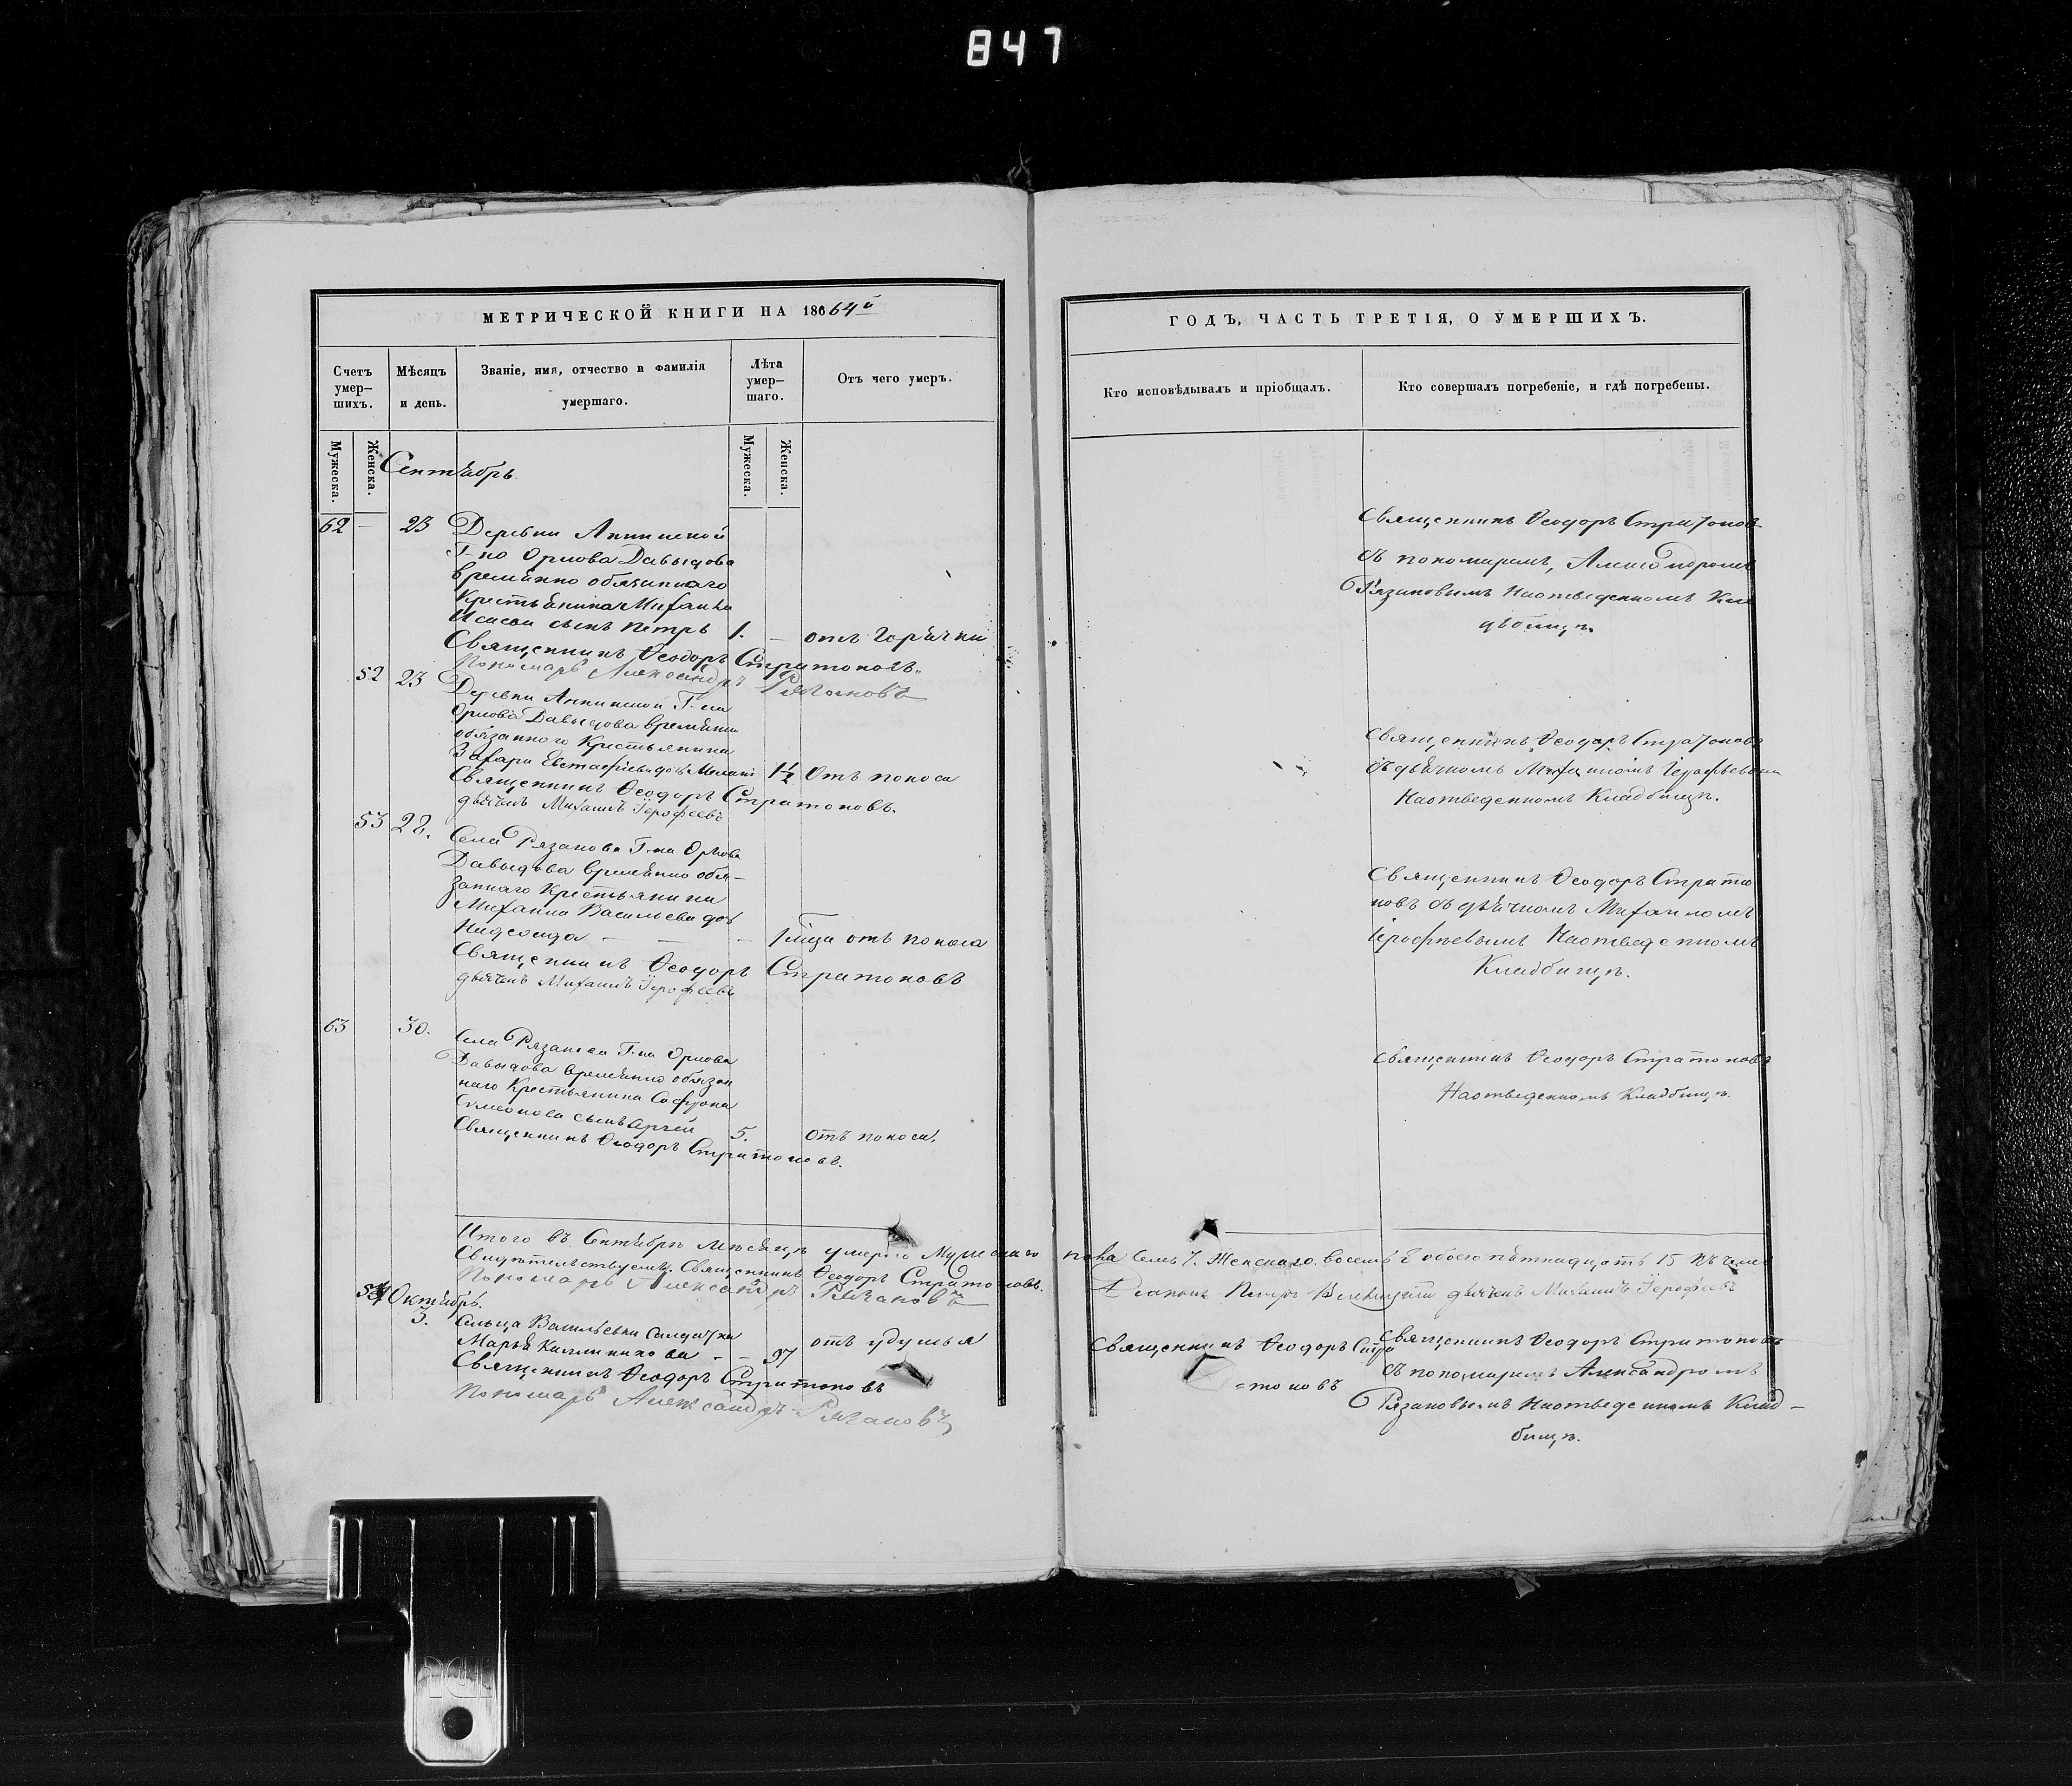 847
МЕТРИЧЕСКОЙ КНИГИ НА 18664й
Счетъ умер-шихъ.
Мѣсяцъ и день.
Званіе, имя, отчество и фамилія умершаго.
Лѣта умер-шаго.
Отъ чего умеръ.
Мужеска.
Женска.
Мужеска.
Женска.
Сентябрь
62 — 23 Деревни Аннинской
Г-на Орлова Давыдова
временно обязаннаго
Крестьянина Михаила
Исаева сынъ Петръ 1. — отъ горячки
Священникъ Ѳеодоръ Стратоновъ.
Пономарь Александръ Рязановъ
52 23 Деревни Аннинской Г-на
Орлова Давыдова временно
обязанного Крестьянина
Захара Евстафьева дочь 1½ Отъ поноса
Священникъ Ѳеодоръ Стратоновъ.
дьячекъ Михаилъ Іерофеевъ
53 28. Села Рязанова Г-на Орлова
Давыдова временно обя-
заннаго Крестьянина
Михаила Васильева дочь
— — отъ поноса
Священникъ Ѳеодоръ Стратоновъ
дьячекъ Михаилъ Іерофеевъ
63 30. Села Рязанова Г-на Орлова
Давыдова временно обязан
наго Крестьянина Софрона
Симеонова сынъ 5. отъ поноса.
Священникъ Ѳеодоръ Стратоновъ.
Итого въ Сентябрѣ мѣсяцѣ умерло Мужескаго
Свидѣтельствуемъ. Священникъ Ѳеодоръ Стратоновъ.
Пономарь Александръ Рязановъ
54 Октябрь.
3. Сельца Васильевки Солдатка
Марья Калинникова — — 37 отъ удушья
Священникъ Ѳеодоръ Стратоновъ
Пономарь Александръ Рязановъ
ГОДЪ, ЧАСТЬ ТРЕТІЯ, О УМЕРШИХЪ.
Кто исповѣдывалъ и пріобщалъ.
Кто совершалъ погребеніе, и гдѣ погребены.
Священникъ Ѳеодоръ Стратонов
съ пономаремъ, Александромъ
Рязановымъ На отведенномъ Кла
дбищѣ.
Священникъ Ѳеодоръ Стратоновъ
съ дьячкомъ Михаиломъ Іерофеевымъ
На отведенномъ Кладбищѣ.
Священникъ Ѳеодоръ Страто
новъ съ дьячкомъ Михаиломъ
Іерофеевымъ На отведенномъ
Кладбищѣ.
Священникъ Ѳеодоръ Стратоновъ
На отведенномъ Кладбищѣ.
пола Семь 7. Женскаго восемь 8 обоего пятнадцать 15
Діаконъ Петръ дьячекъ Михаилъ Іерофеевъ
Священникъ Ѳеодоръ Стра
=тоновъ
Священникъ Ѳеодоръ Стратоновъ
съ пономаремъ Александромъ
Рязановымъ На отведенномъ Клад-
бищѣ.